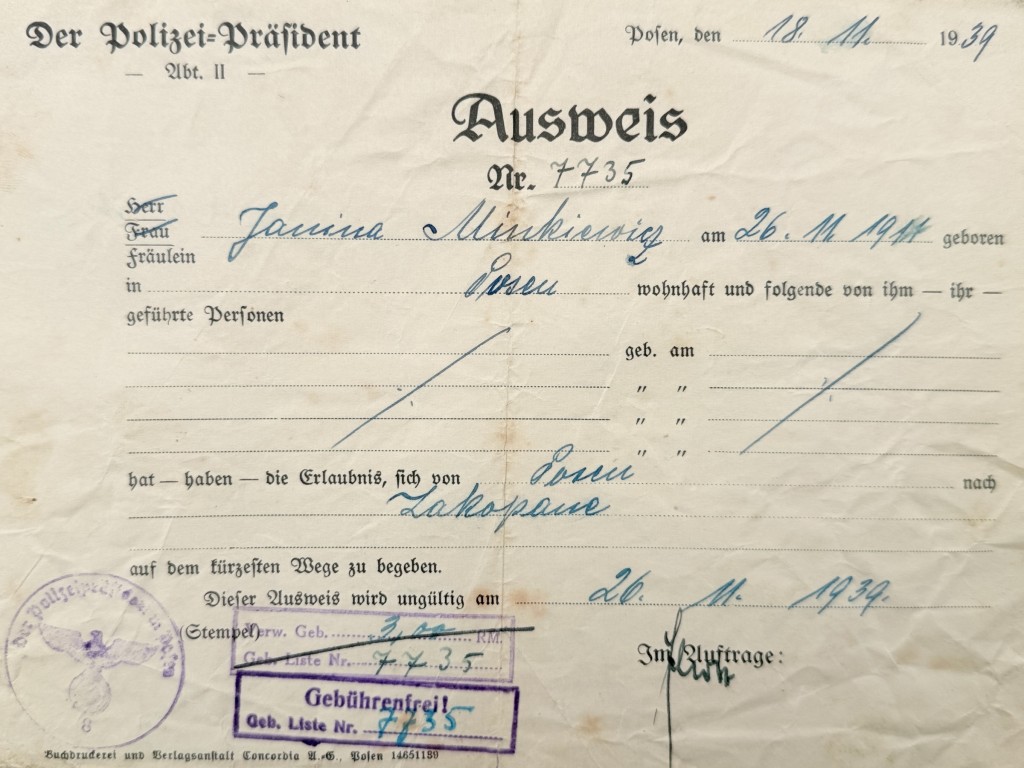 Der Polizei=Präsident
— Abt. II —
Posen, den 18. 11. 1939
Ausweis
Nr. 7735
Herr
Frau
Fräulein
Janina Minkiewicz am 26. 11 19 geboren
in Posen wohnhaft und folgende von ihm — ihr —
geführte Personen
geb. am
" "
" "
" "
hat — haben — die Erlaubnis, sich von Posen nach
Zakopane
auf dem kürzesten Wege zu begeben.
Dieser Ausweis wird ungültig am 26. 11. 1939.
(Stempel)
Verw. Geb. 3,00 RM.
Geb. Liste Nr. 7735
Im Auftrage:
Gebührenfrei!
Geb. Liste Nr. 7735
Der Polizeipräsident in Posen
8
Buchdruckerei und Verlagsanstalt Concordia A.-G., Posen 14651139